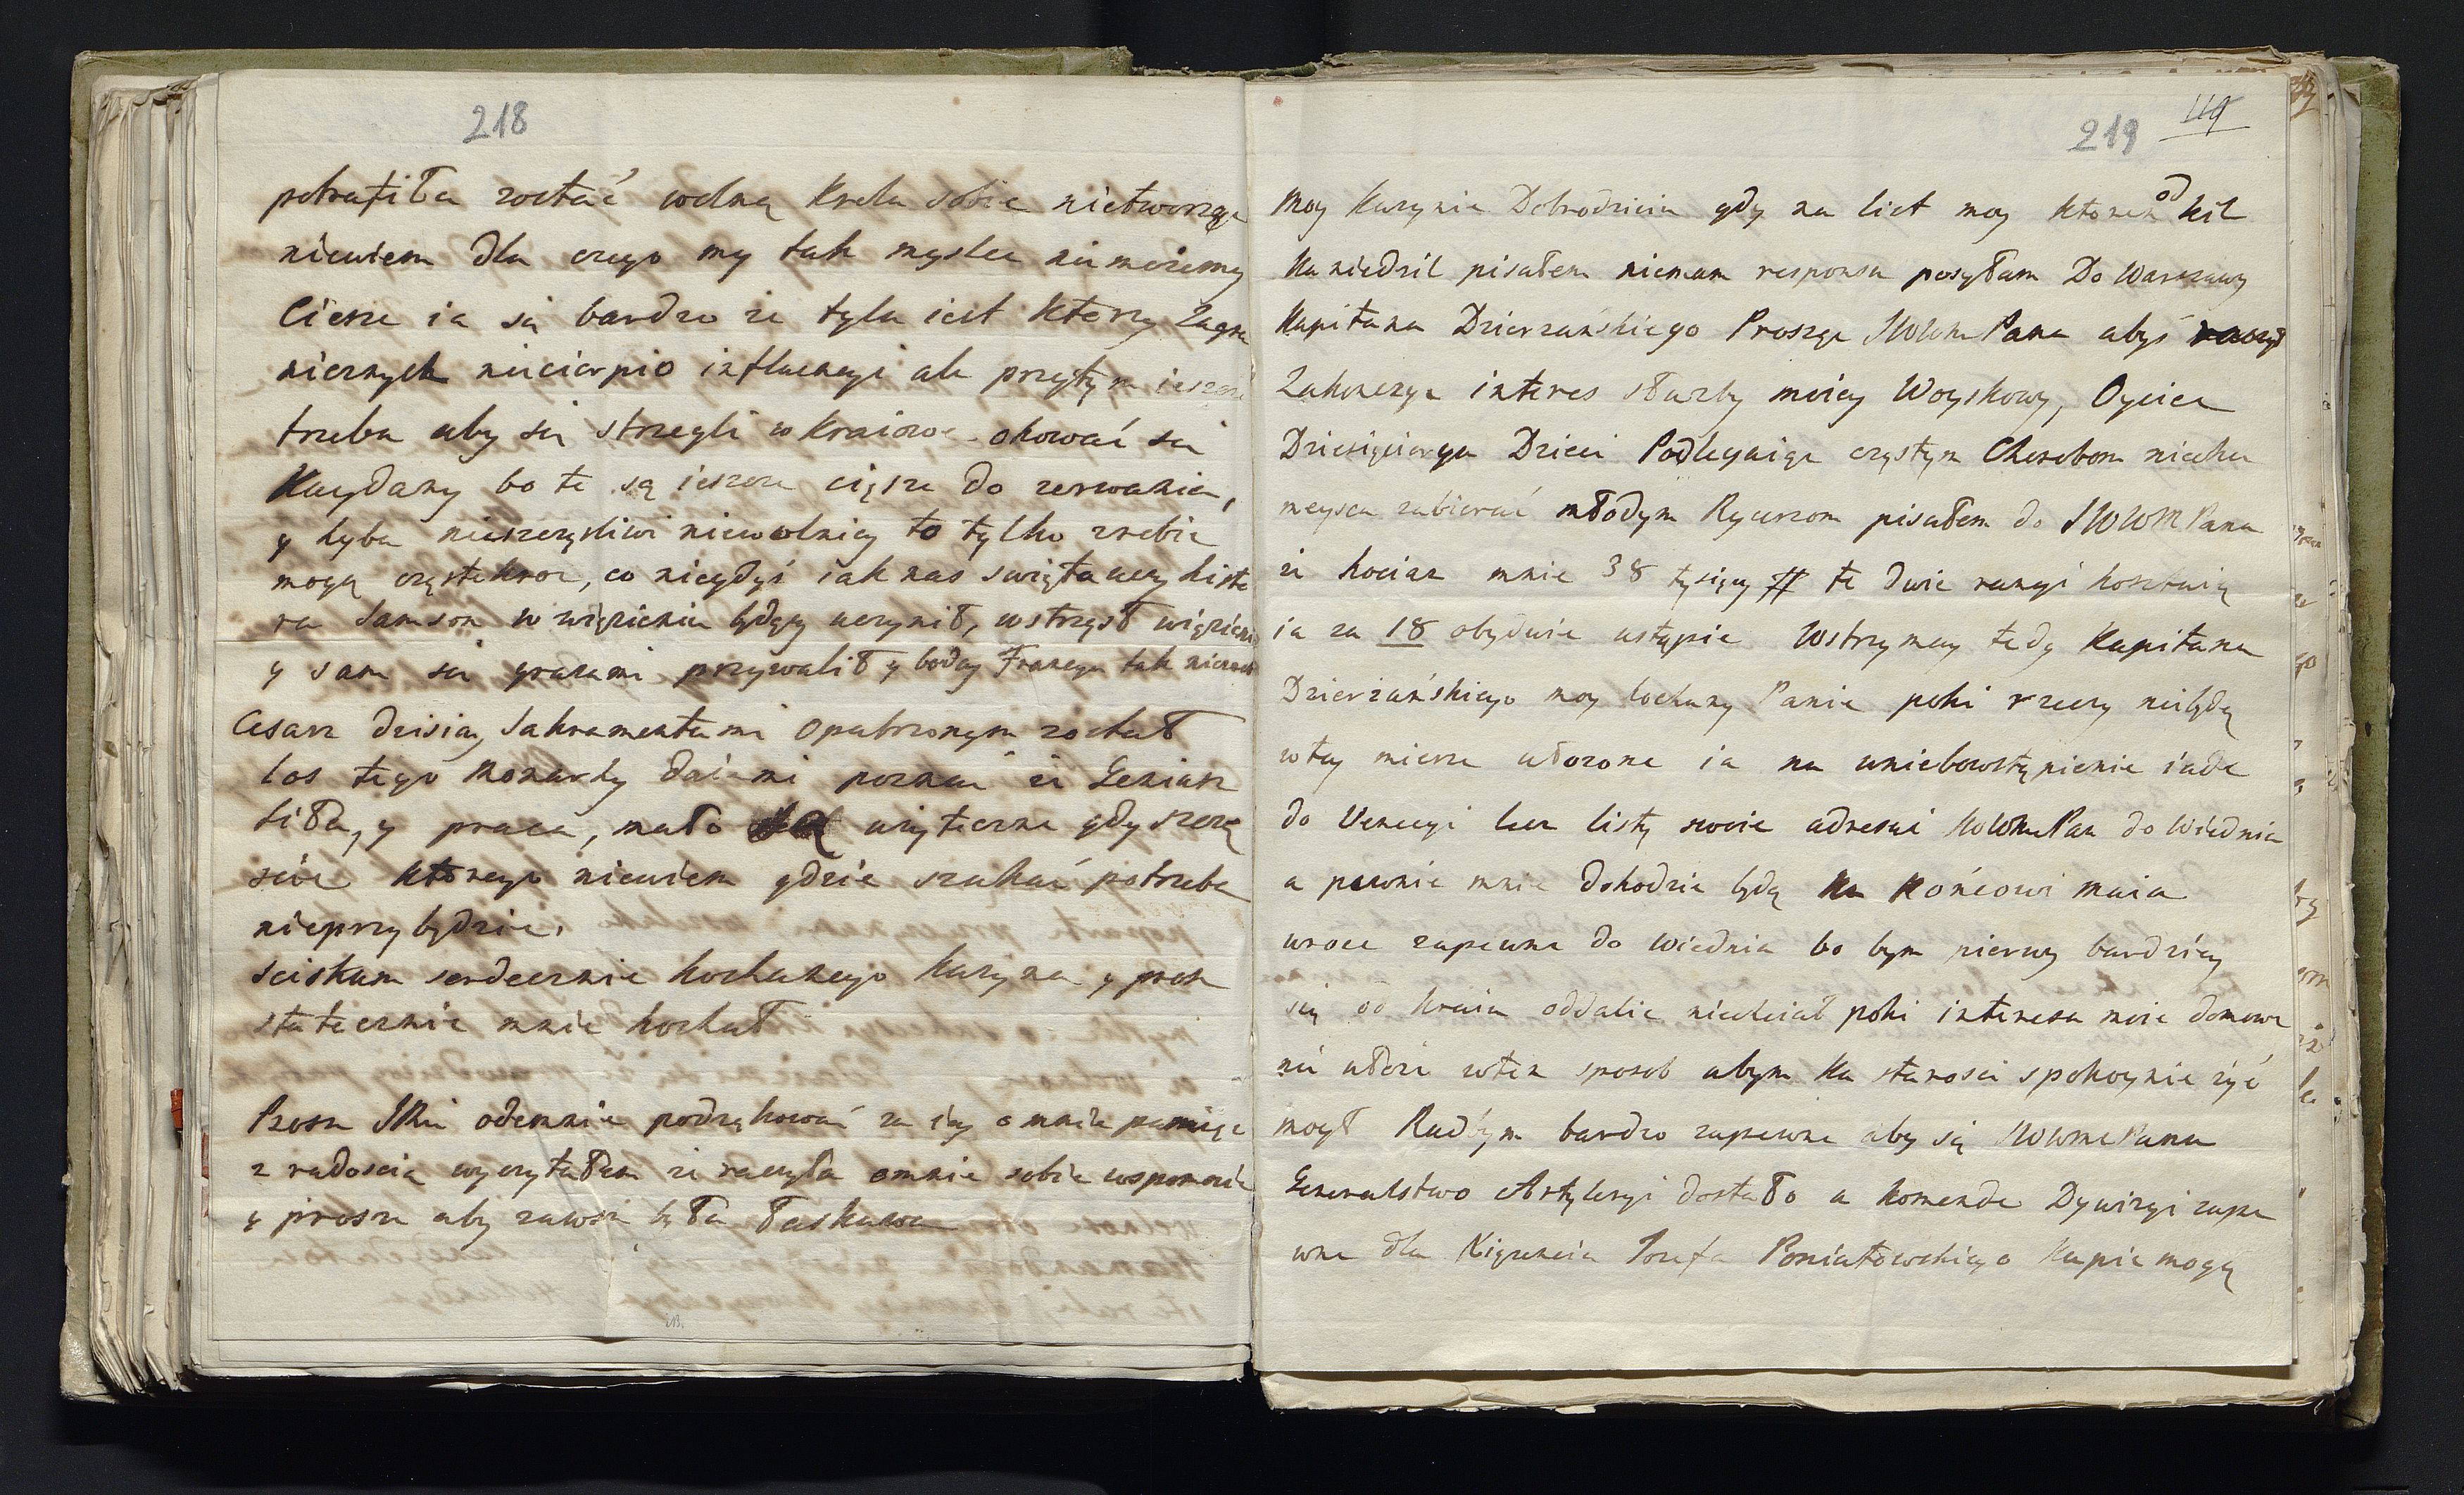 218
potrafiła zostać wolną Krola sobie nietworząc
niewiem dla czego my tak myslec niemożemy
Ciesze ia się bardzo że tylu iest Ktorzy Zagra
nicznych niecierpio influencyi ale przytym ieszcze
trzeba aby się strzegli w Kraiowe okować się
Kaydany bo te są ieszcze cięsze do zerwania,
y hyba nieszczęsliwi niewolnicy to tylko zrobic
mogą częstokroc, co niegdyś iak nas swięta uczy histo
ria Samson w więzieniu będący uczynił, wstrząsł więzieniem
y sam się gruzami przywalił y boday Francya tak
Cesarz dzisiay Sakramentami opatrzonym został
los tego Monarhy daie mi poznać że Geniusz
siła, y praca, mało są użyteczne gdy szczę
scie ktorego niewiem gdzie szukać potrzeba
nieprzybędzie.
sciskam serdecznie kochanego Kuzyna y prosze
statecznie mnie kochał
Prosze JMci odemnie podziękować za iey o mnie pamięc
z radoscia wyczytałem że raczyła omnie sobie wspomniec
y prosze aby zawsze była łaskawa
219 119
Moy Kuzynie Dobrodzieiu gdy na list moy ktoren od kil
Ku niedzil pisałem niemam responsu posyłam Do Warszawy
Kapitana Dzierzańskiego Proszęc JWWMPana abyś raczył
Zakonczyc interes służby moiey Woyskowy, Oycieca
Dziesięciorga Dzieci Podlegaiąc częstym Chorobom niechce
meysca zabierać młodym Rycerzom pisałem do JWWMPana
że hociaz mnie 38 tysięcy # te dwie rangi kosztuią
ia za 18 obydwie ustąpie Wstrzymay tedy Kapitana
Dzierżańskiego moy kochany Panie poki rzeczy niebędą
wtey mierze ułozone ia na wniebowstąpienie iade
do Venecyi lecz listy swoie adresui JWWMPan do Wiednia
a pewnie mnie dohodzic będą Ku Końcowi maia
wroce zapewne do Wiednia bo bym pierwy bardziey
się od kraiu oddalic niechciał poki interesa moie domowe
nie ułoże wten sposob abym Ku starosci spokoynie żyć
mogł Radbym bardzo zapewne aby się JWWMPanu
Generalstwo Artyleryi dostało a komende Dywizyi zape
wne dla Xiązencia Jozefa Poniatowskiego Kupic mogą